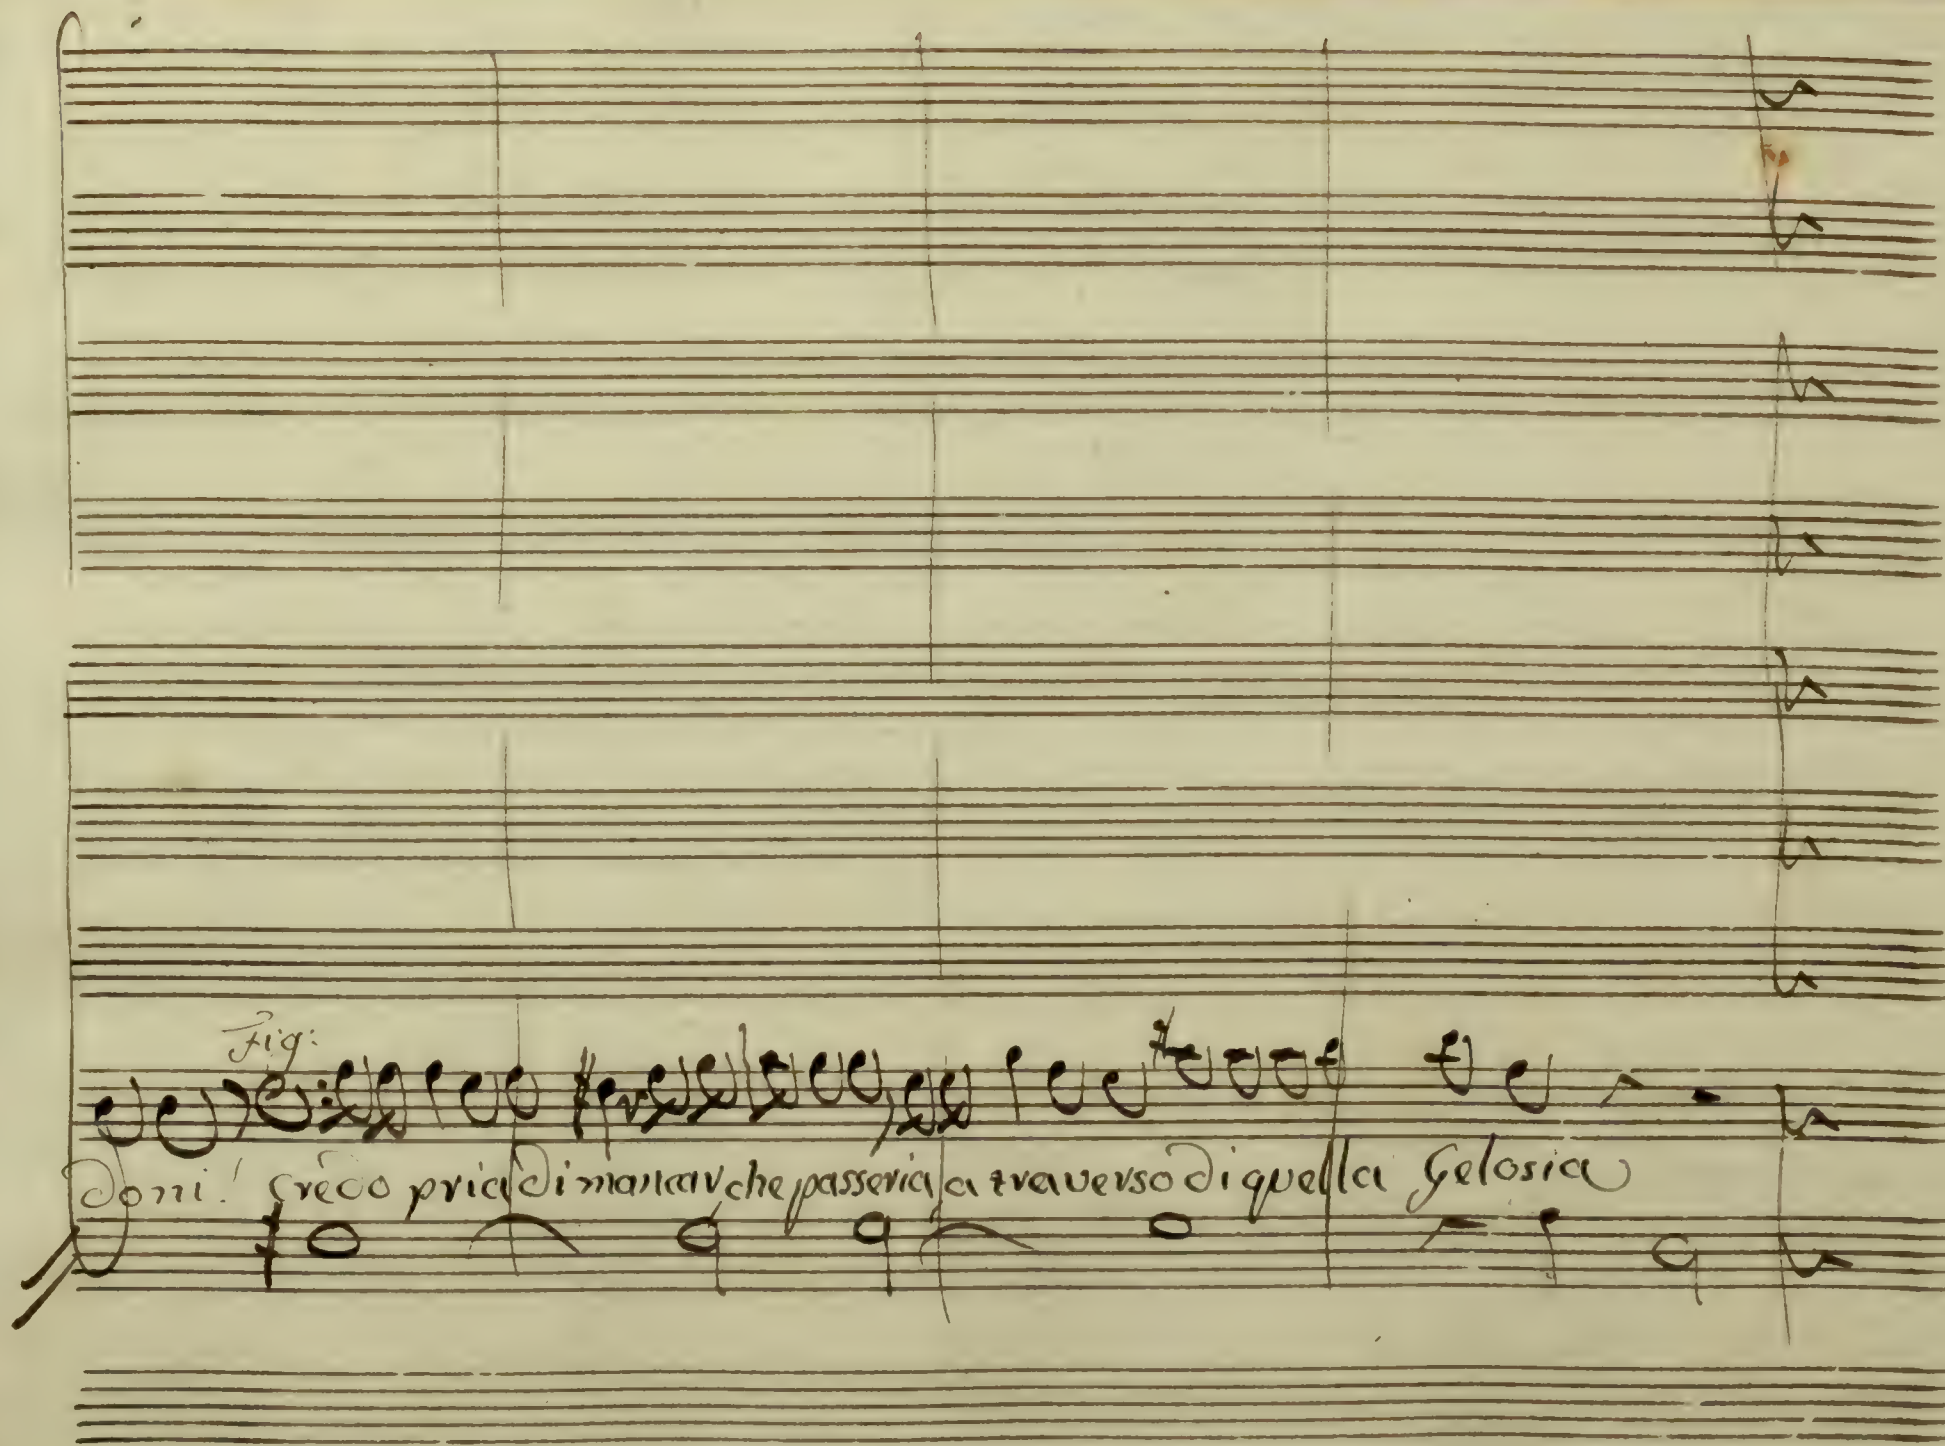 Fig:
doni! Credo pria di mancar che passeria a traverso di quella Gelosia